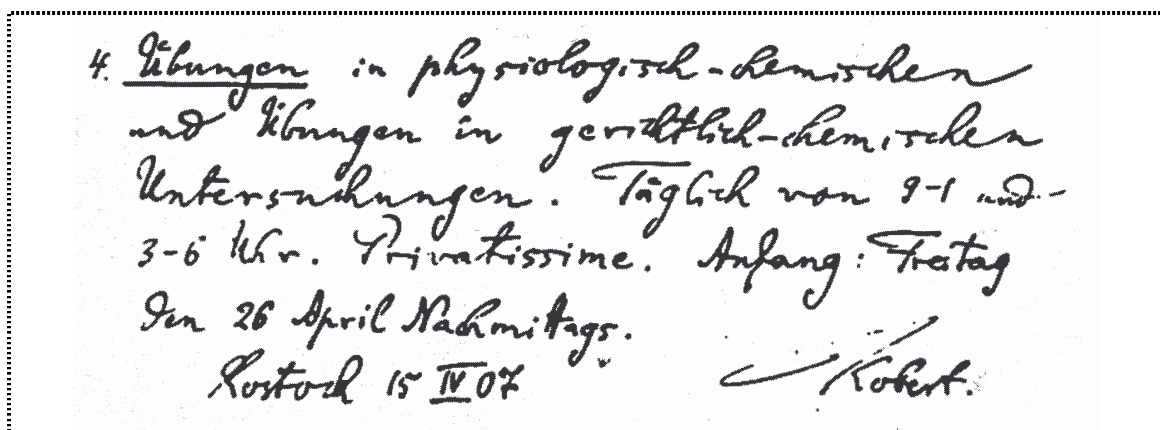 4. Übungen in physiologisch-chemischen
und Übungen in gerichtlich-chemischen
Untersuchungen. Täglich von 9-1 und
3-6 Uhr. Privatissime. Anfang: Freitag
den 26 April Nachmittags.
Rostock 15 IV 07 Kobert.